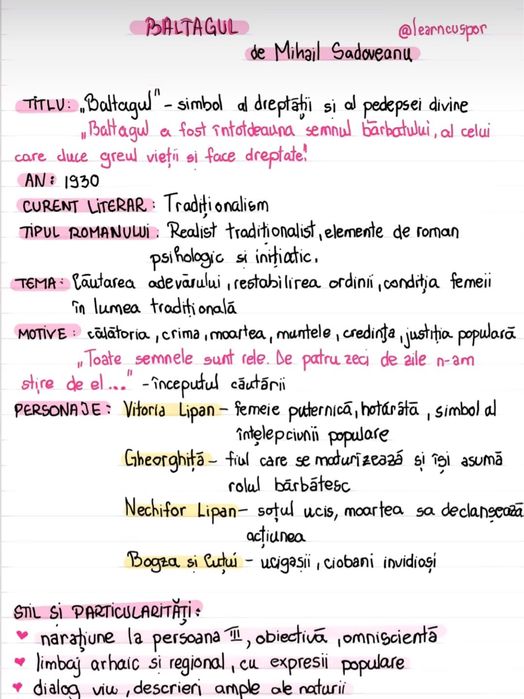 BALTAGUL
@learncuspor
de Mihail Sadoveanu
TITLU: „Baltagul" – simbol al dreptății și al pedepsei divine
„Baltagul a fost întotdeauna semnul bărbatului, al celui
care duce greul vieții si face dreptate!
AN: 1930
CURENT LITERAR: Tradiționalism
TIPUL ROMANULUI: Realist traditionalist, elemente de roman
psihologic si inițiatic.
TEMA: Căutarea adevărului, restabilirea ordinii, condiția femeii
în lumea tradițională
MOTIVE: călătoria, crima, moartea, muntele, credința, justiția populară
„Toate semnele sunt rele. De patru zeci de zile n-am
stire de el..." -începutul căutării
PERSONAJE: Vitoria Lipan – femeie puternică, hotărâtă, simbol al
înțelepciunii populare
Gheorghiță – fiul care se maturizează și își asumă
rolul bărbătesc
Nechifor Lipan – soțul ucis, moartea sa declanșează
acțiunea
Bogza si Cuțui – ucigașii, ciobani invidioși
STIL SI PARTICULARITĂȚI:
♥ narațiune la persoana III, obiectivă, omniscientă
♥ limbaj arhaic si regional, cu expresii populare
♥ dialog viu, descrieri ample ale naturii